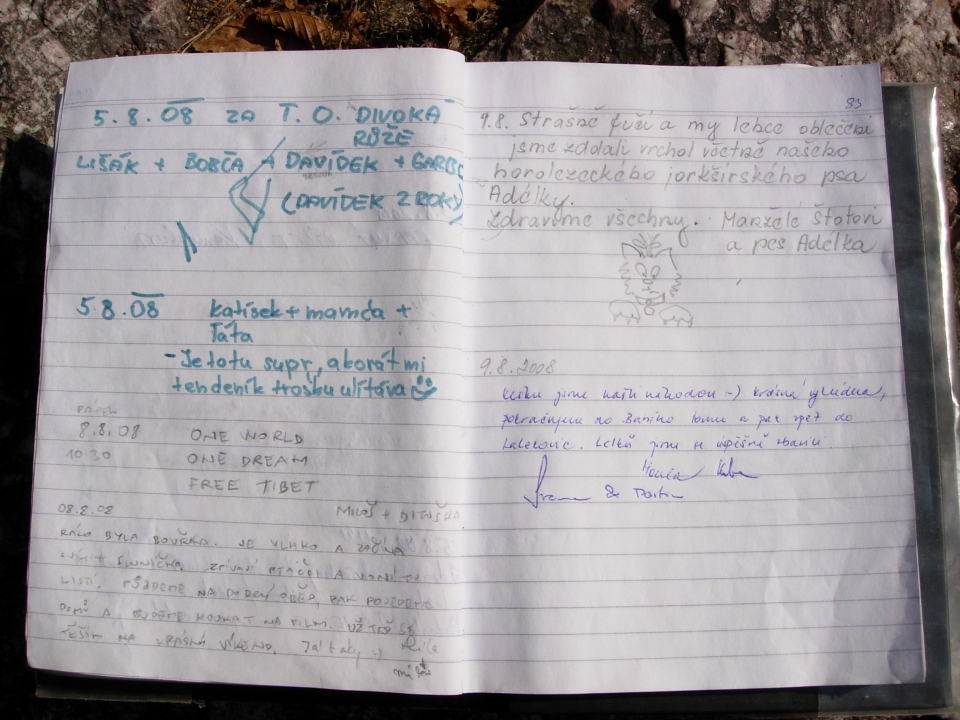 5.8.08 ZA T. O. DIVOKÁ
RŮŽE
LIŠÁK + BOBČA + DAVÍDEK +
(DAVÍDEK 2 ROKY)
5.8.08 Katísek + mamča +
Táta
- Je to tu supr, akorát mi
ten deník trošku ulítáva
PÁTEK
8.8.08 ONE WORLD
10:30 ONE DREAM
FREE TIBET
08.8.08 MILOŠ +
RÁNO BYLA BOUŘKA. JE VLHKO A ZAČÍNÁ
SVÍTIT SLUNÍČKO. ZPÍVAJÍ PTÁČCI A VONÍ
LISTÍ. PŮJDEME NA DOBRÝ OBĚD, PAK POJEDEME
DOMŮ A BUDEME KOUKAT NA FILM. UŽ TEĎ SE
TĚŠÍM NA KRÁSNÝ VÍKEND. Já taky :-)
83
9.8. Strašně fučí a my lehce oblečeni
jsme zdolali vrchol včetně našeho
horolezeckého jorkšírského psa
Adélky.
Zdravíme všechny. Manželé Štotovi
a pes Adélka
9.8.2008
jsme našli náhodou :-) Krásná vyhlídka,
pokračujeme do lomu a pak zpět do